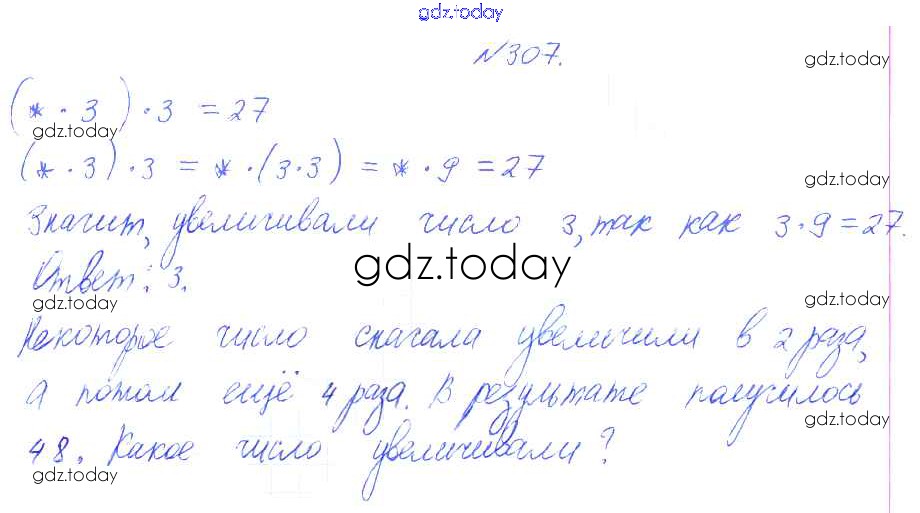 gdz.today
№307.
gdz.today
(* · 3) · 3 = 27
gdz.today
(* · 3) · 3 = * · (3·3) = * · 9 = 27
gdz.today
Значит, увеличивали число 3, так как 3·9=27.
Ответ: 3.
gdz.today
gdz.today
gdz.today
Некоторое число сначала увеличили в 2 раза,
а потом ещё 4 раза. В результате получилось
gdz.today
48. Какое число увеличивали?
gdz.today